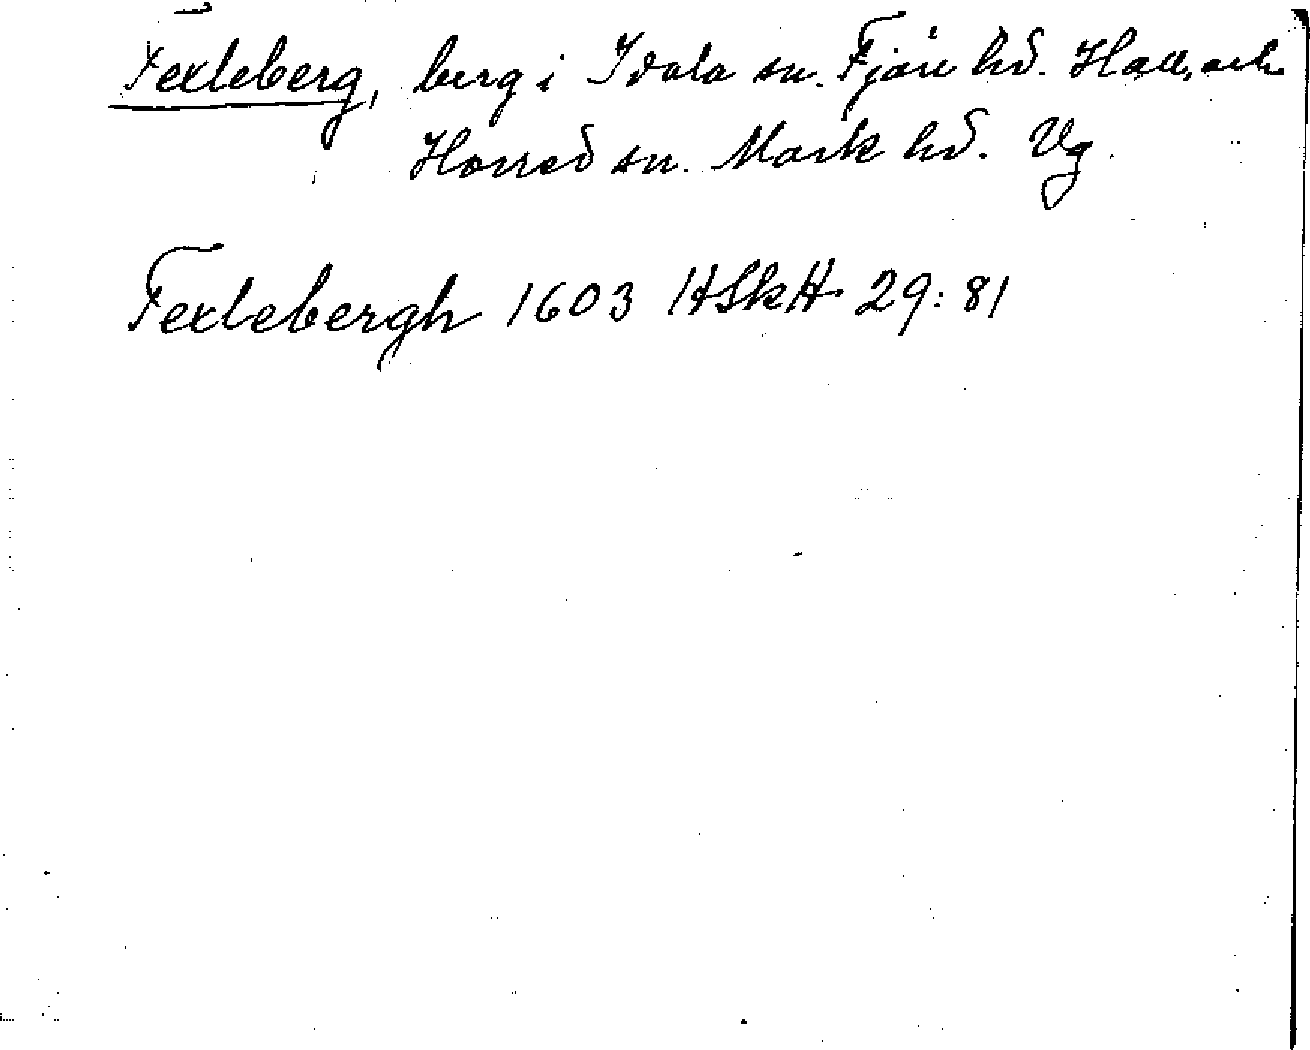 Fexleberg, berg i Idala sn. Fjäre hd. Hall, och
Horred sn. Mark hd. Vg.
Fexlebergh 1603 HSkH 29:81